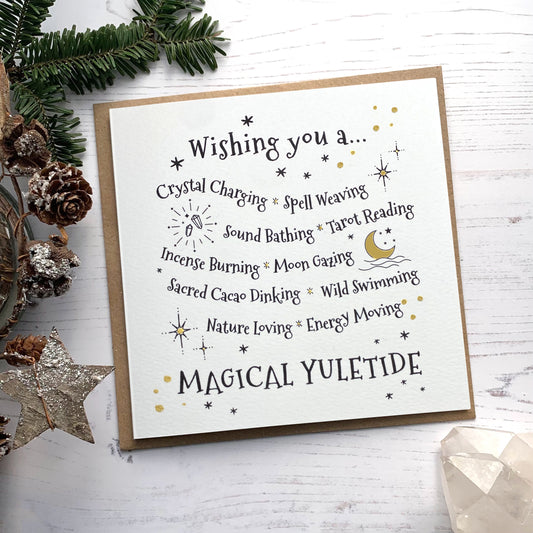 Wishing you a...
Crystal Charging * Spell Weaving
Sound Bathing * Tarot Reading
Incense Burning * Moon Gazing
Sacred Cacao Dinking * Wild Swimming
Nature Loving * Energy Moving
MAGICAL YULETIDE